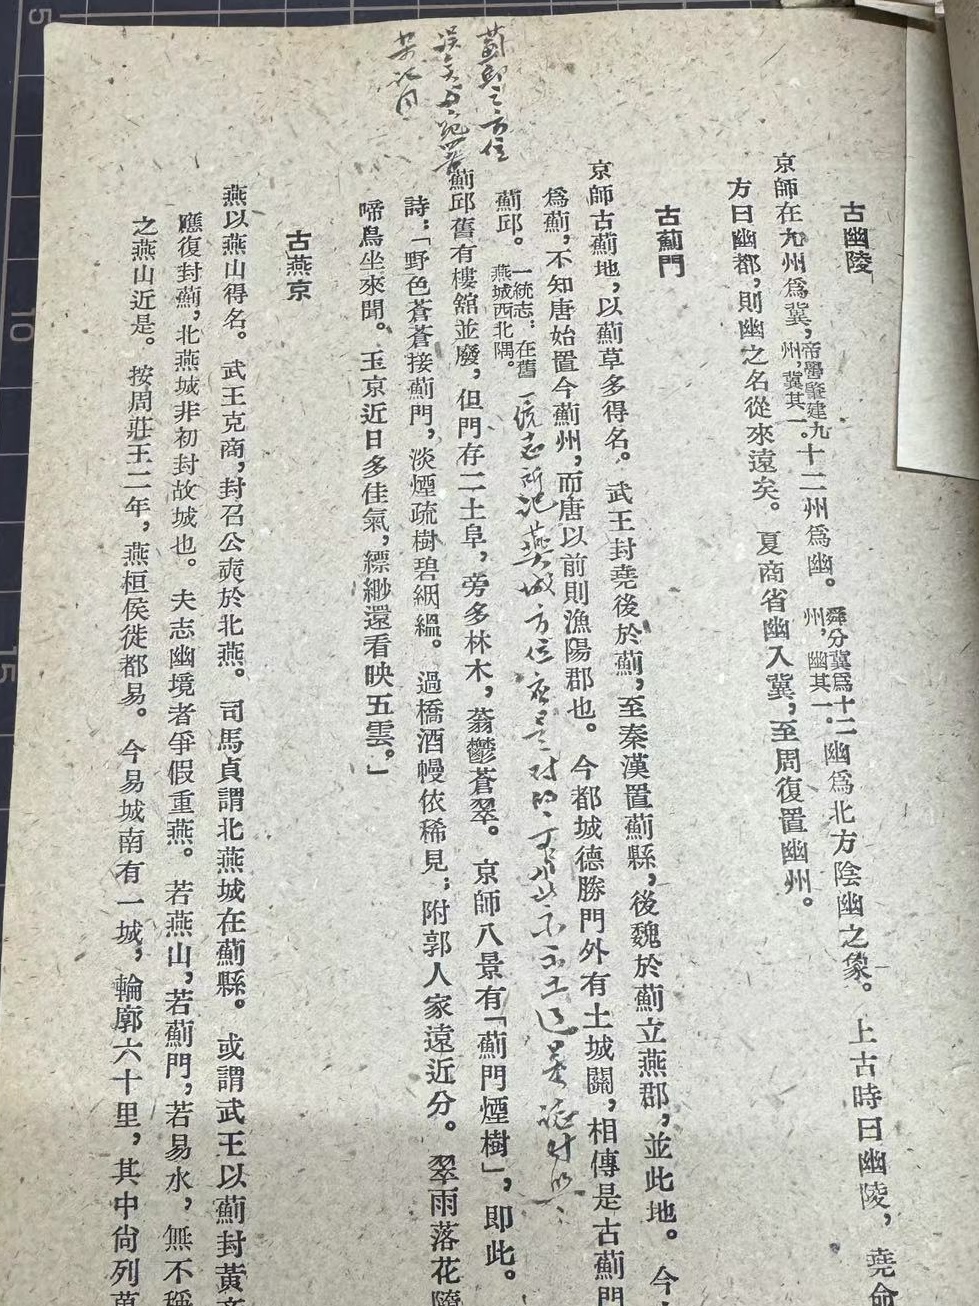 古幽陵
京師在九州爲冀，帝嚳肇建九州，冀其一。十二州爲幽。舜分冀爲十二州，幽其一。幽爲北方陰幽之象。上古時曰幽陵，堯命
方曰幽都，則幽之名從來遠矣。夏商省幽入冀，至周復置幽州。
古薊門
京師古薊地，以薊草多得名。武王封堯後於薊，至秦漢置薊縣，後魏於薊立燕郡，並此地。今
爲薊，不知唐始置今薊州，而唐以前則漁陽郡也。今都城德勝門外有土城關，相傳是古薊門
薊邱。一統志：在舊燕城西北隅。
一统志所记燕城方位
薊邱之方位
薊邱舊有樓舘並廢，但門存二土阜，旁多林木，蓊鬱蒼翠。京師八景有「薊門煙樹」，即此。
詩：「野色蒼蒼接薊門，淡煙疏樹碧絪縕。過橋酒幔依稀見；附郭人家遠近分。翠雨落花隨
啼鳥坐來聞。玉京近日多佳氣，縹緲還看映五雲。」
古燕京
燕以燕山得名。武王克商，封召公奭於北燕。司馬貞謂北燕城在薊縣。或謂武王以薊封黃帝
應復封薊，北燕城非初封故城也。夫志幽境者爭假重燕。若燕山，若薊門，若易水，無不稱
之燕山近是。按周莊王二年，燕桓侯徙都易。今易城南有一城，輪廓六十里，其中尙列萬